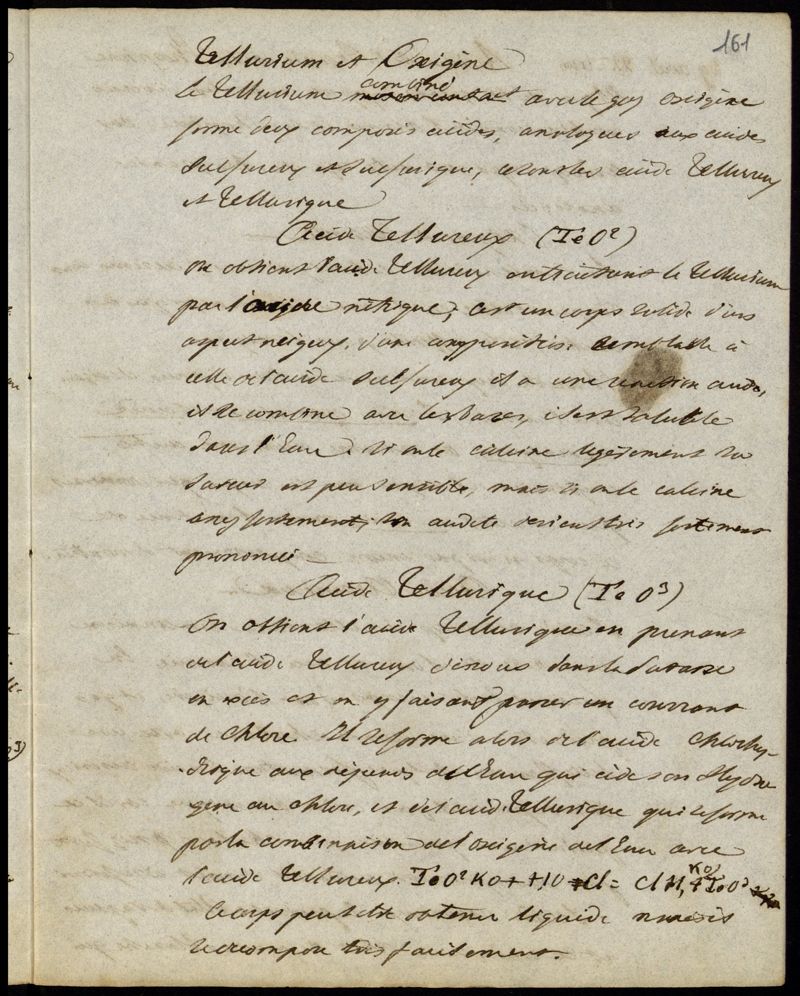 161
Tellurium et Oxigène
le Tellurium combiné avec le gaz oxigène
forme deux composés acides, analogues aux acides
sulfureux et sulfurique, ce sont les acide Tellureux
et Tellurique
Acide Tellureux (TeO²)
On obtient l'acide Tellureux en traitant le Tellurium
par l'acide nitrique; c'est un corps solide d'un
aspect neigeux, d'une composition semblable à
celle de l'acide sulfureux il a une réaction acide,
il se combine avec les bases, il est soluble
dans l'Eau. si on le calcine legerement sa
saveur est peu sensible, mais si on le calcine
assez fortement, son acidité devient très fortement
prononcée
Acide Tellurique (TeO³)
On obtient l'acide Tellurique en prenant
de l'acide Tellureux dissous dans la Potasse
en excès et en y faisant passer un courrant
de chlore Il se forme alors de l'acide chlorhy-
drique aux dépends de l'Eau qui cède son Hydro
gène au chlore, et de l'acide Tellurique qui se forme
par la combinaison de l'oxigène de l'Eau avec
l'acide Tellureux. TeO² KO + HO + Cl = Cl H, + TeO³ KO
Ce corps peut être obtenu liquide mais il
se decompose très facilement.